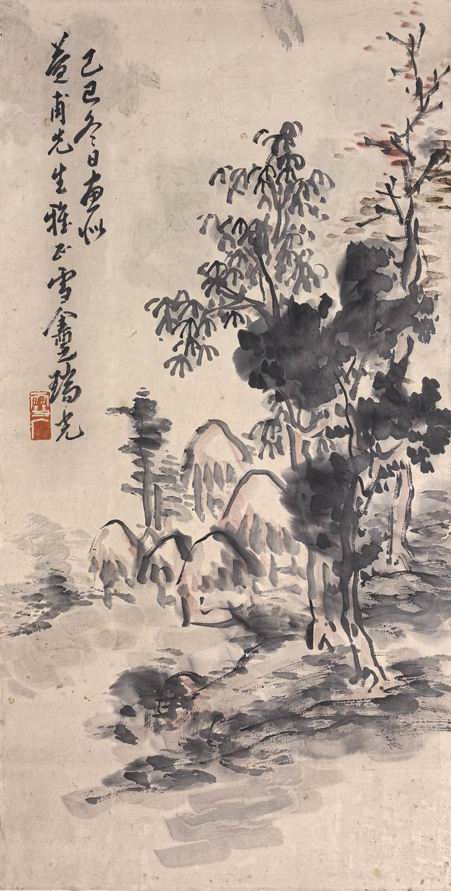 己巳冬日畫似
甫先生雅正雪盦瑞光